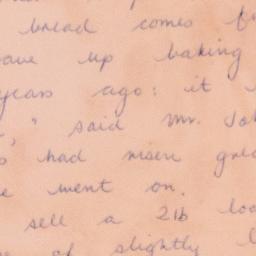 bread comes
up baking
years ago: it
," said Mr.
had risen
went on.
sell a 2lb
of slightly